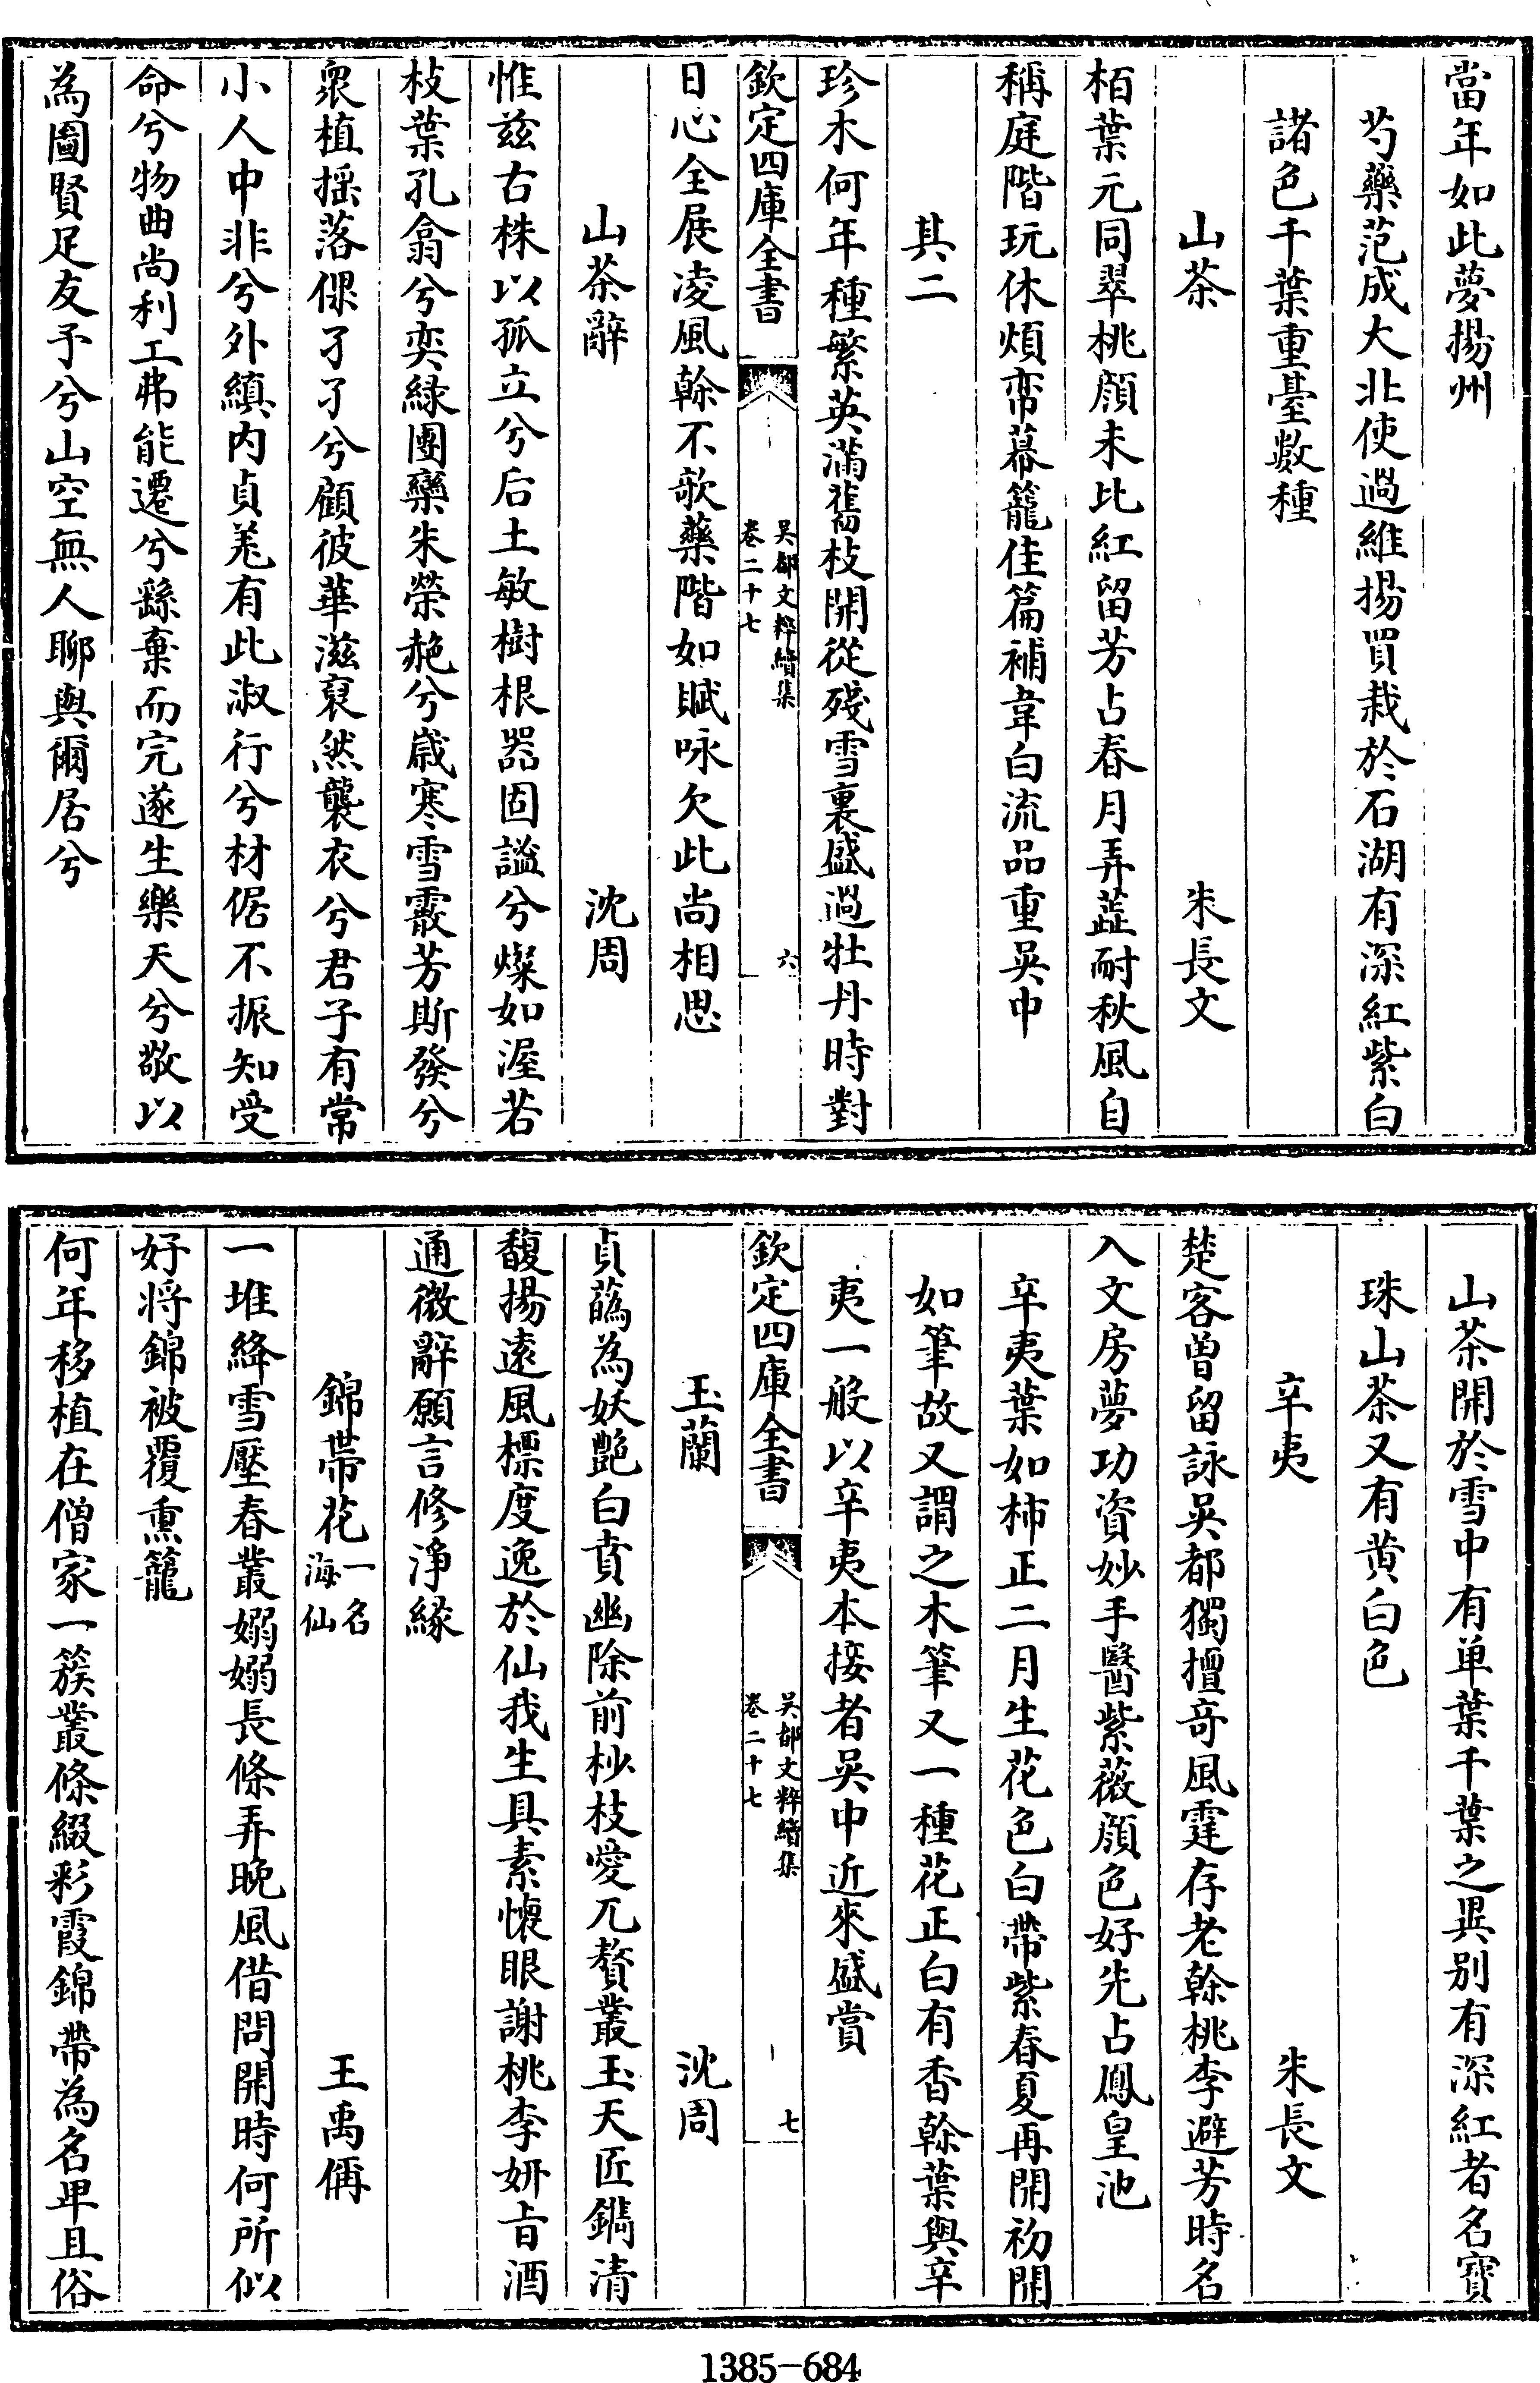 當年如此夢揚州
芍藥范成大北使過維揚買栽於石湖有深紅紫白
諸色千葉重臺數種
山茶 朱長文
栢葉元同翠桃顔未比紅留芳占春月弄蘂耐秋風自
稱庭階玩休煩帟幕籠佳篇補韋白流品重吳中
其二
珍木何年種繁英滿舊枝開從殘雪裏盛過牡丹時對
欽定四庫全書 吳都文粹續集 卷二十七 六
日心全展凌風榦不欹藥階如賦咏欠此尚相思
山茶辭 沈周
惟兹古株以孤立兮后土敏樹根器固謐兮燦如渥若
枝葉孔翕兮奕緑團欒朱榮赩兮嵗寒雪霰芳斯發兮
衆植揺落倮孑孑兮顧彼華滋裒然襲衣兮君子有常
小人中非兮外縝内貞羗有此淑行兮材倨不振知受
命兮物曲尚利工弗能遷兮繇棄而完遂生樂天兮敬以
為圖賢足友予兮山空無人聊與爾居兮
山茶開於雪中有单葉千葉之異别有深紅者名寳
珠山茶又有黄白色
辛夷 朱長文
楚客曽留詠吳都獨擅竒風霆存老榦桃李避芳時名
入文房夢功資妙手醫紫薇顔色好先占鳳皇池
辛夷葉如柿正二月生花色白帶紫春夏再開初開
如筆故又謂之木筆又一種花正白有香榦葉與辛
夷一般以辛夷本接者吳中近來盛賞
欽定四庫全書 吳都文粹續集 卷二十七 七
玉蘭 沈周
貞蘤為妖艶白賁幽除前杪枝愛兀贅叢玉天匠鐫清
馥揚遠風標度逸於仙我生具素懐眼謝桃李妍㫖酒
通微辭願言修淨緣
錦帯花 一名海仙 王禹偁
一堆絳雪壓春叢嫋嫋長條弄晩風借問開時何所似
好将錦被覆熏籠
何年移植在僧家一簇叢條綴彩霞錦帶為名卑且俗
1385-684